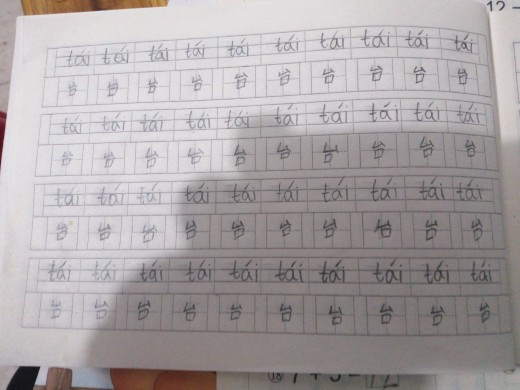 12
tái tái tái tái tái tái tái tái tái tái
台 台 台 台 台 台 台 台 台 台
tái tái tái tái tái tái tái tái tái tái
台 台 台 台 台 台 台 台 台 台
tái tái tái tái tái tái tái tái tái tái
台 台 台 台 台 台 台 台 台 台
tái tái tái tái tái tái tái tái tái tái
台 台 台 台 台 台 台 台 台 台